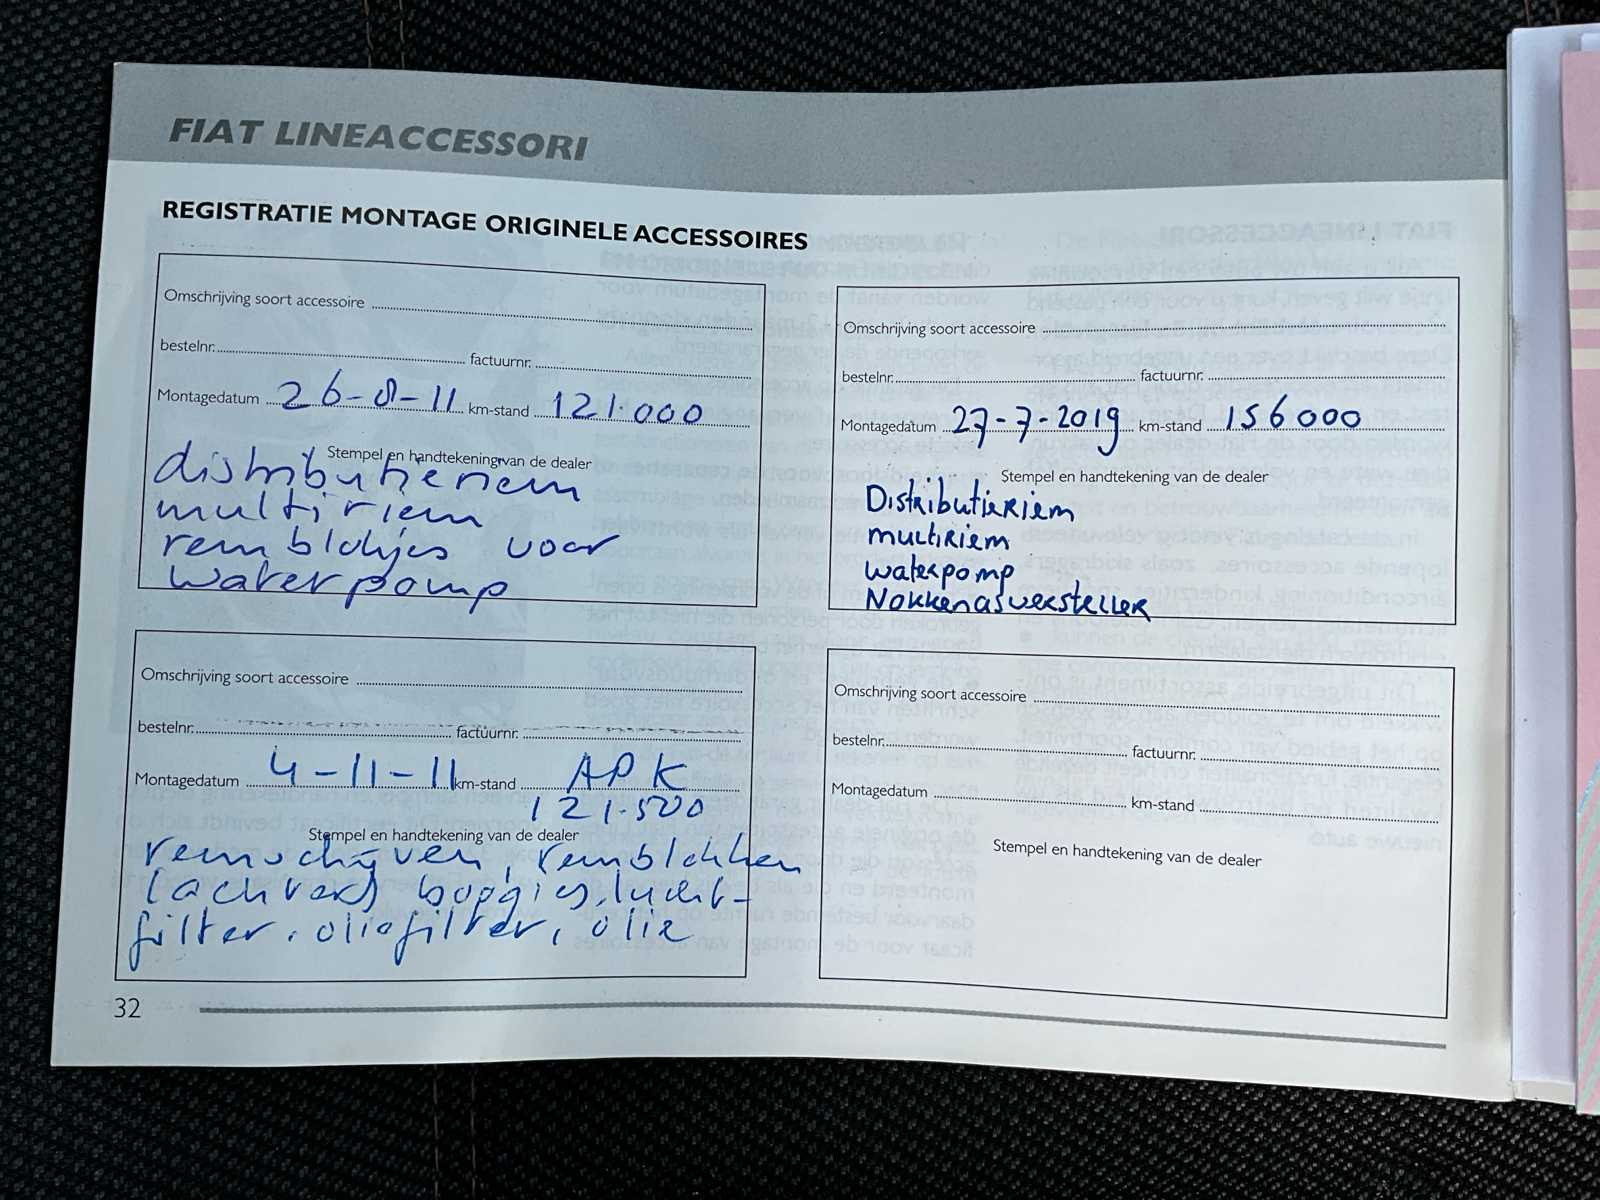 FIAT LINEACCESSORI
REGISTRATIE MONTAGE ORIGINELE ACCESSOIRES
Omschrijving soort accessoire
bestelnr. factuurnr.
Montagedatum 26-8-11 km-stand 121.000
Stempel en handtekening van de dealer
distributieriem
multiriem
remblokjes voor
waterpomp
Omschrijving soort accessoire
bestelnr. factuurnr.
Montagedatum 27-7-2019 km-stand 156000
Stempel en handtekening van de dealer
Distributieriem
multiriem
waterpomp
Nokkenasversteller
Omschrijving soort accessoire
bestelnr. factuurnr.
Montagedatum 4-11-11 km-stand APK
121.500
Stempel en handtekening van de dealer
remschijven, remblokken
(achter) boogies, lucht-
filter, oliefilter, olie
Omschrijving soort accessoire
bestelnr. factuurnr.
Montagedatum km-stand
Stempel en handtekening van de dealer
32